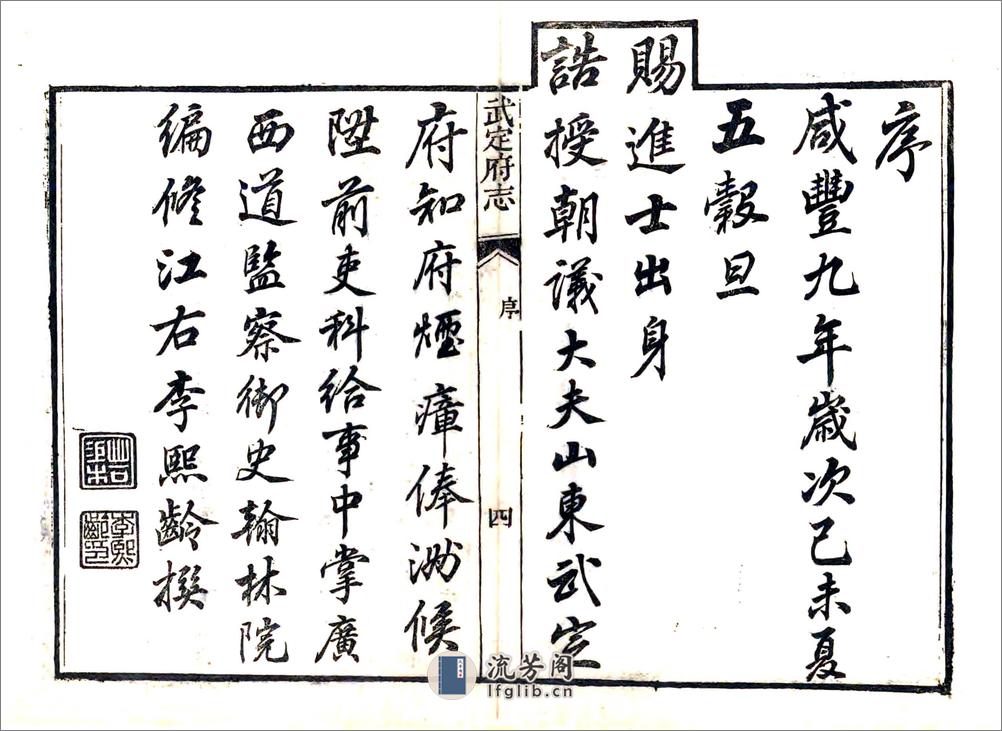 序
咸豐九年歲次己未夏
五穀旦
賜進士出身
誥授朝議大夫山東武定
武定府志
序
四
府知府煙瘴俸泐候
陞前吏科給事中掌廣
西道監察御史翰林院
編修江右李熙齡撰
李熙齡印
流芳阁
lfglib.cn